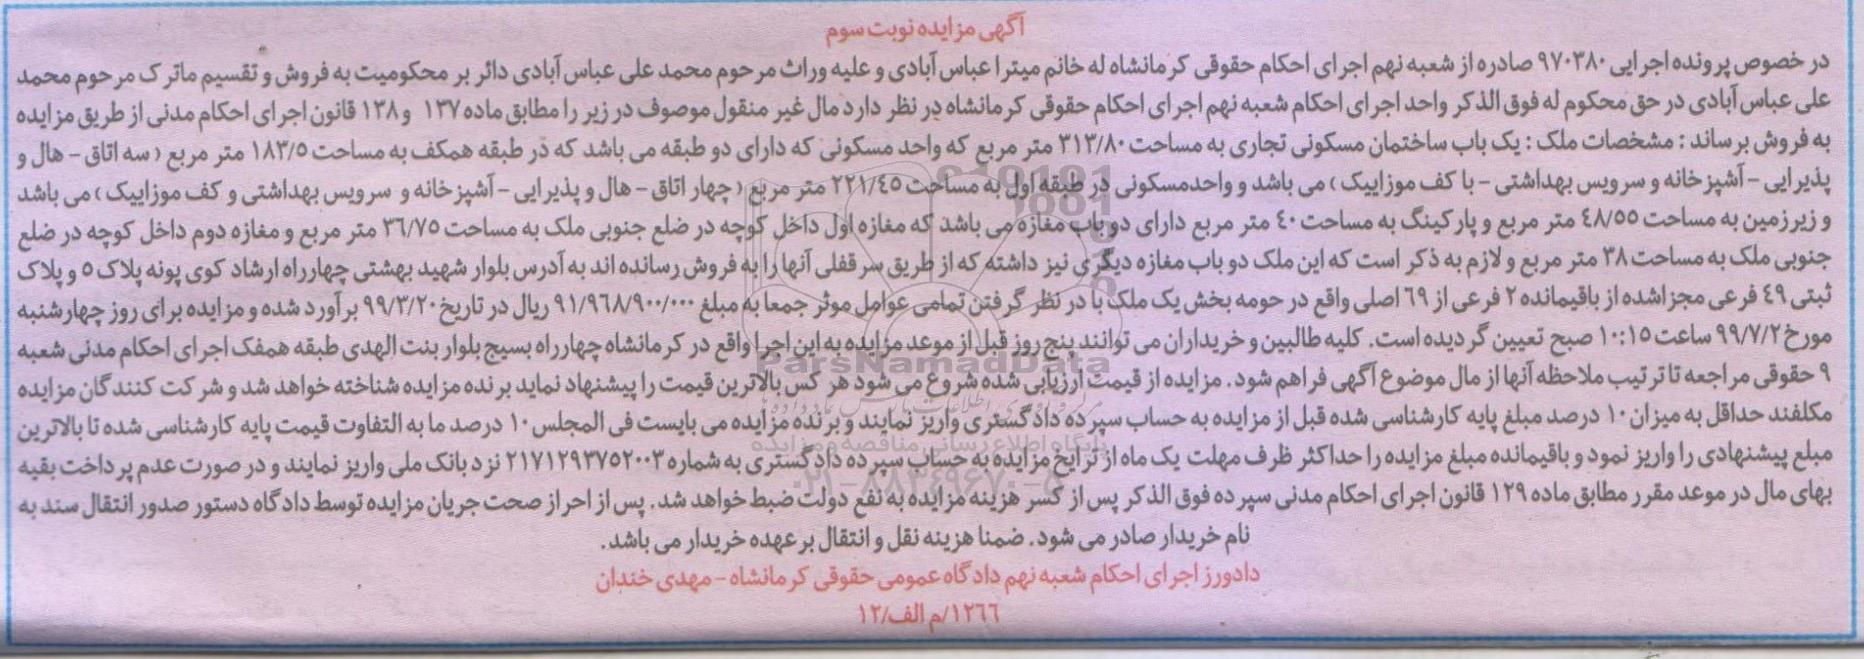 آگهی مزایده نوبت سوم
در خصوص پرونده اجرایی ۹۷۰۳۸۰ صادره از شعبه نهم اجرای احکام حقوقی کرمانشاه له خانم میترا عباس آبادی و علیه وراث مرحوم محمد علی عباس آبادی دائر بر محکومیت به فروش و تقسیم ماترک مرحوم محمد
علی عباس آبادی در حق محکوم له فوق الذکر واحد اجرای احکام شعبه نهم اجرای احکام حقوقی کرمانشاه در نظر دارد مال غیر منقول موصوف در زیر را مطابق ماده ۱۳۷ و ۱۳۸ قانون اجرای احکام مدنی از طریق مزایده
به فروش برساند : مشخصات ملک : یک باب ساختمان مسکونی تجاری به مساحت ۳۱۳/۸۰ متر مربع که واحد مسکونی که دارای دو طبقه می باشد که در طبقه همکف به مساحت ۱۸۳/۵ متر مربع ( سه اتاق - هال و
پذیرایی - آشپزخانه و سرویس بهداشتی - با کف موزاییک ) می باشد و واحدمسکونی در طبقه اول به مساحت ۲۲۱/۴۵ متر مربع ( چهار اتاق - هال و پذیرایی - آشپزخانه و سرویس بهداشتی و کف موزاییک ) می باشد
و زیرزمین به مساحت ۴۸/۵۵ متر مربع و پارکینگ به مساحت ۴۰ متر مربع دارای دو باب مغازه می باشد که مغازه اول داخل کوچه در ضلع جنوبی ملک به مساحت ۳۶/۷۵ متر مربع و مغازه دوم داخل کوچه در ضلع
جنوبی ملک به مساحت ۳۸ متر مربع و لازم به ذکر است که این ملک دو باب مغازه دیگری نیز داشته که از طریق سرقفلی آنها را به فروش رسانده اند به آدرس بلوار شهید بهشتی چهارراه ارشاد کوی پونه پلاک ۵ و پلاک
ثبتی ۴۹ فرعی مجزاشده از باقیمانده ۲ فرعی از ۶۹ اصلی واقع در حومه بخش یک ملک با در نظر گرفتن تمامی عوامل موثر جمعا به مبلغ ۹۱/۹۶۸/۹۰۰/۰۰۰ ریال در تاریخ ۹۹/۳/۲۰ برآورد شده و مزایده برای روز چهارشنبه
مورخ ۹۹/۷/۲ ساعت ۱۰:۱۵ صبح تعیین گردیده است. کلیه طالبین و خریداران می توانند پنج روز قبل از موعد مزایده به این اجرا واقع در کرمانشاه چهارراه بسیج بلوار بنت الهدی طبقه همفک اجرای احکام مدنی شعبه
۹ حقوقی مراجعه تا ترتیب ملاحظه آنها از مال موضوع آگهی فراهم شود. مزایده از قیمت ارزیابی شده شروع می شود هر کس بالاترین قیمت را پیشنهاد نماید برنده مزایده شناخته خواهد شد و شرکت کنندگان مزایده
مکلفند حداقل به میزان ۱۰ درصد مبلغ پایه کارشناسی شده قبل از مزایده به حساب سپرده دادگستری واریز نمایند و برنده مزایده می بایست فی المجلس ۱۰ درصد ما به التفاوت قیمت پایه کارشناسی شده تا بالاترین
مبلغ پیشنهادی را واریز نمود و باقیمانده مبلغ مزایده را حداکثر ظرف مهلت یک ماه از تاریخ مزایده به حساب سپرده دادگستری به شماره ۲۱۷۱۲۹۳۷۵۲۰۰۳ نزد بانک ملی واریز نمایند و در صورت عدم پرداخت بقیه
بهای مال در موعد مقرر مطابق ماده ۱۲۹ قانون اجرای احکام مدنی سپرده فوق الذکر پس از کسر هزینه مزایده به نفع دولت ضبط خواهد شد. پس از احراز صحت جریان مزایده توسط دادگاه دستور صدور انتقال سند به
نام خریدار صادر می شود. ضمنا هزینه نقل و انتقال بر عهده خریدار می باشد.
دادورز اجرای احکام شعبه نهم دادگاه عمومی حقوقی کرمانشاه - مهدی خندان
۱۲۶۶/م الف/۱۲
ParsNamadData
پایگاه اطلاع رسانی مناقصه و مزایده
۰۲۱-۸۸۳۴۹۶۷۰-۵